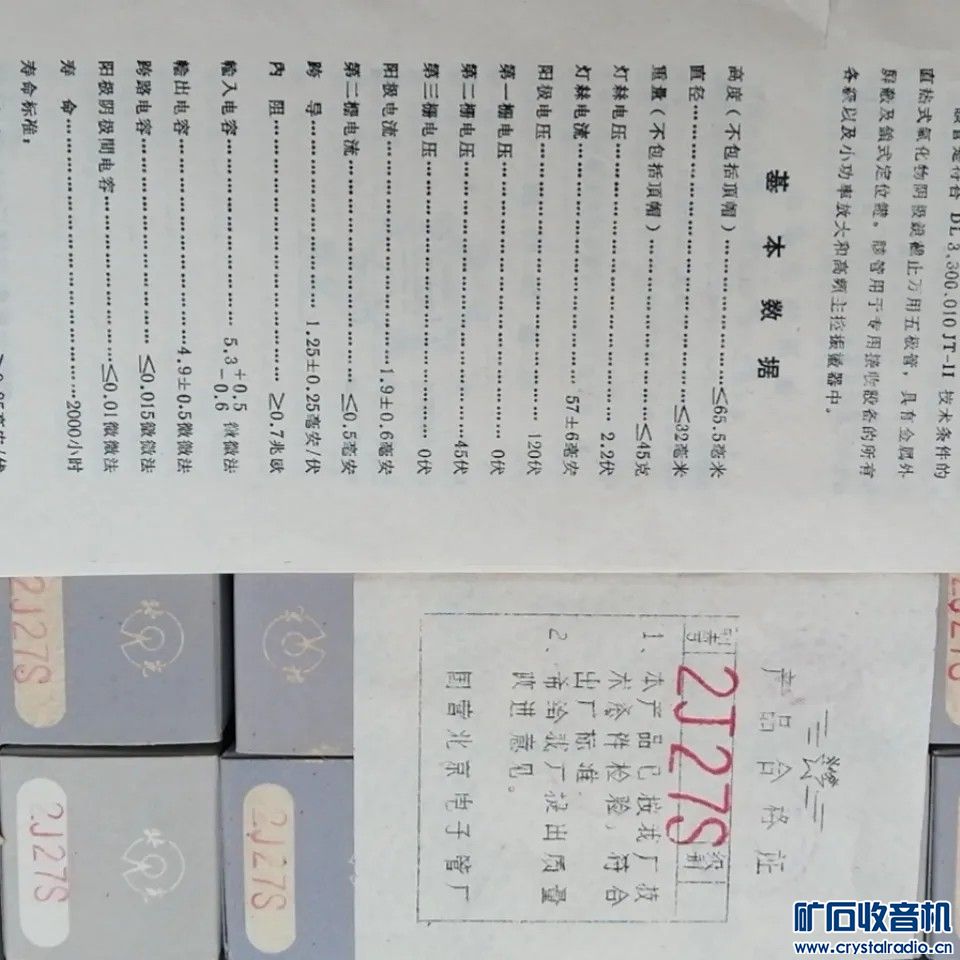 该管是符合 DL3.300.010 JT-II 技术条件的
直热式氧化物阴极锐截止万用五极管，具有金属外
屏蔽及鎖式定位鍵。该管用于专用接收設备的所有
各級以及小功率放大和高頻主控振盪器中。
基本数据
高度（不包括頂帽）……………≤65.5毫米
直径……………≤32毫米
重量（不包括頂帽）……………≤45克
灯絲电压……………2.2伏
灯絲电流……………57±6毫安
阳极电压……………120伏
第一栅电压……………0伏
第二栅电压……………45伏
第三栅电压……………0伏
阳极电流……………1.9±0.6毫安
第二栅电流……………≤0.5毫安
跨导……………1.25±0.25毫安/伏
內阻……………≥0.7兆欧
輸入电容……………5.3+0.5−0.6微微法
輸出电容……………4.9±0.5微微法
跨路电容……………≤0.015微微法
阳极阴极間电容……………≤0.01微微法
寿命……………2000小时
寿命标准：
产品合格证
2J27S
1、本产品已按我厂技
术条件检验，符合
出厂标准。
2、希给我厂提出质量
改进意见。
国营北京电子管厂
2J27S
北京
北京
2J27S
北京
2J27S
2J27S
矿石收音机
www.crystalradio.cn